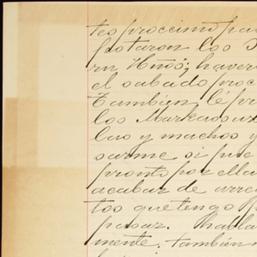 tes proccimo pa
portaron los
rn Hños; haver
el sabado proc
Tambien, le pr
los Marcasus
las y muchos y
sarme si pue
pronto por alla
acabar de arre
tos que tengo p
pasar. habla
mente. tambien